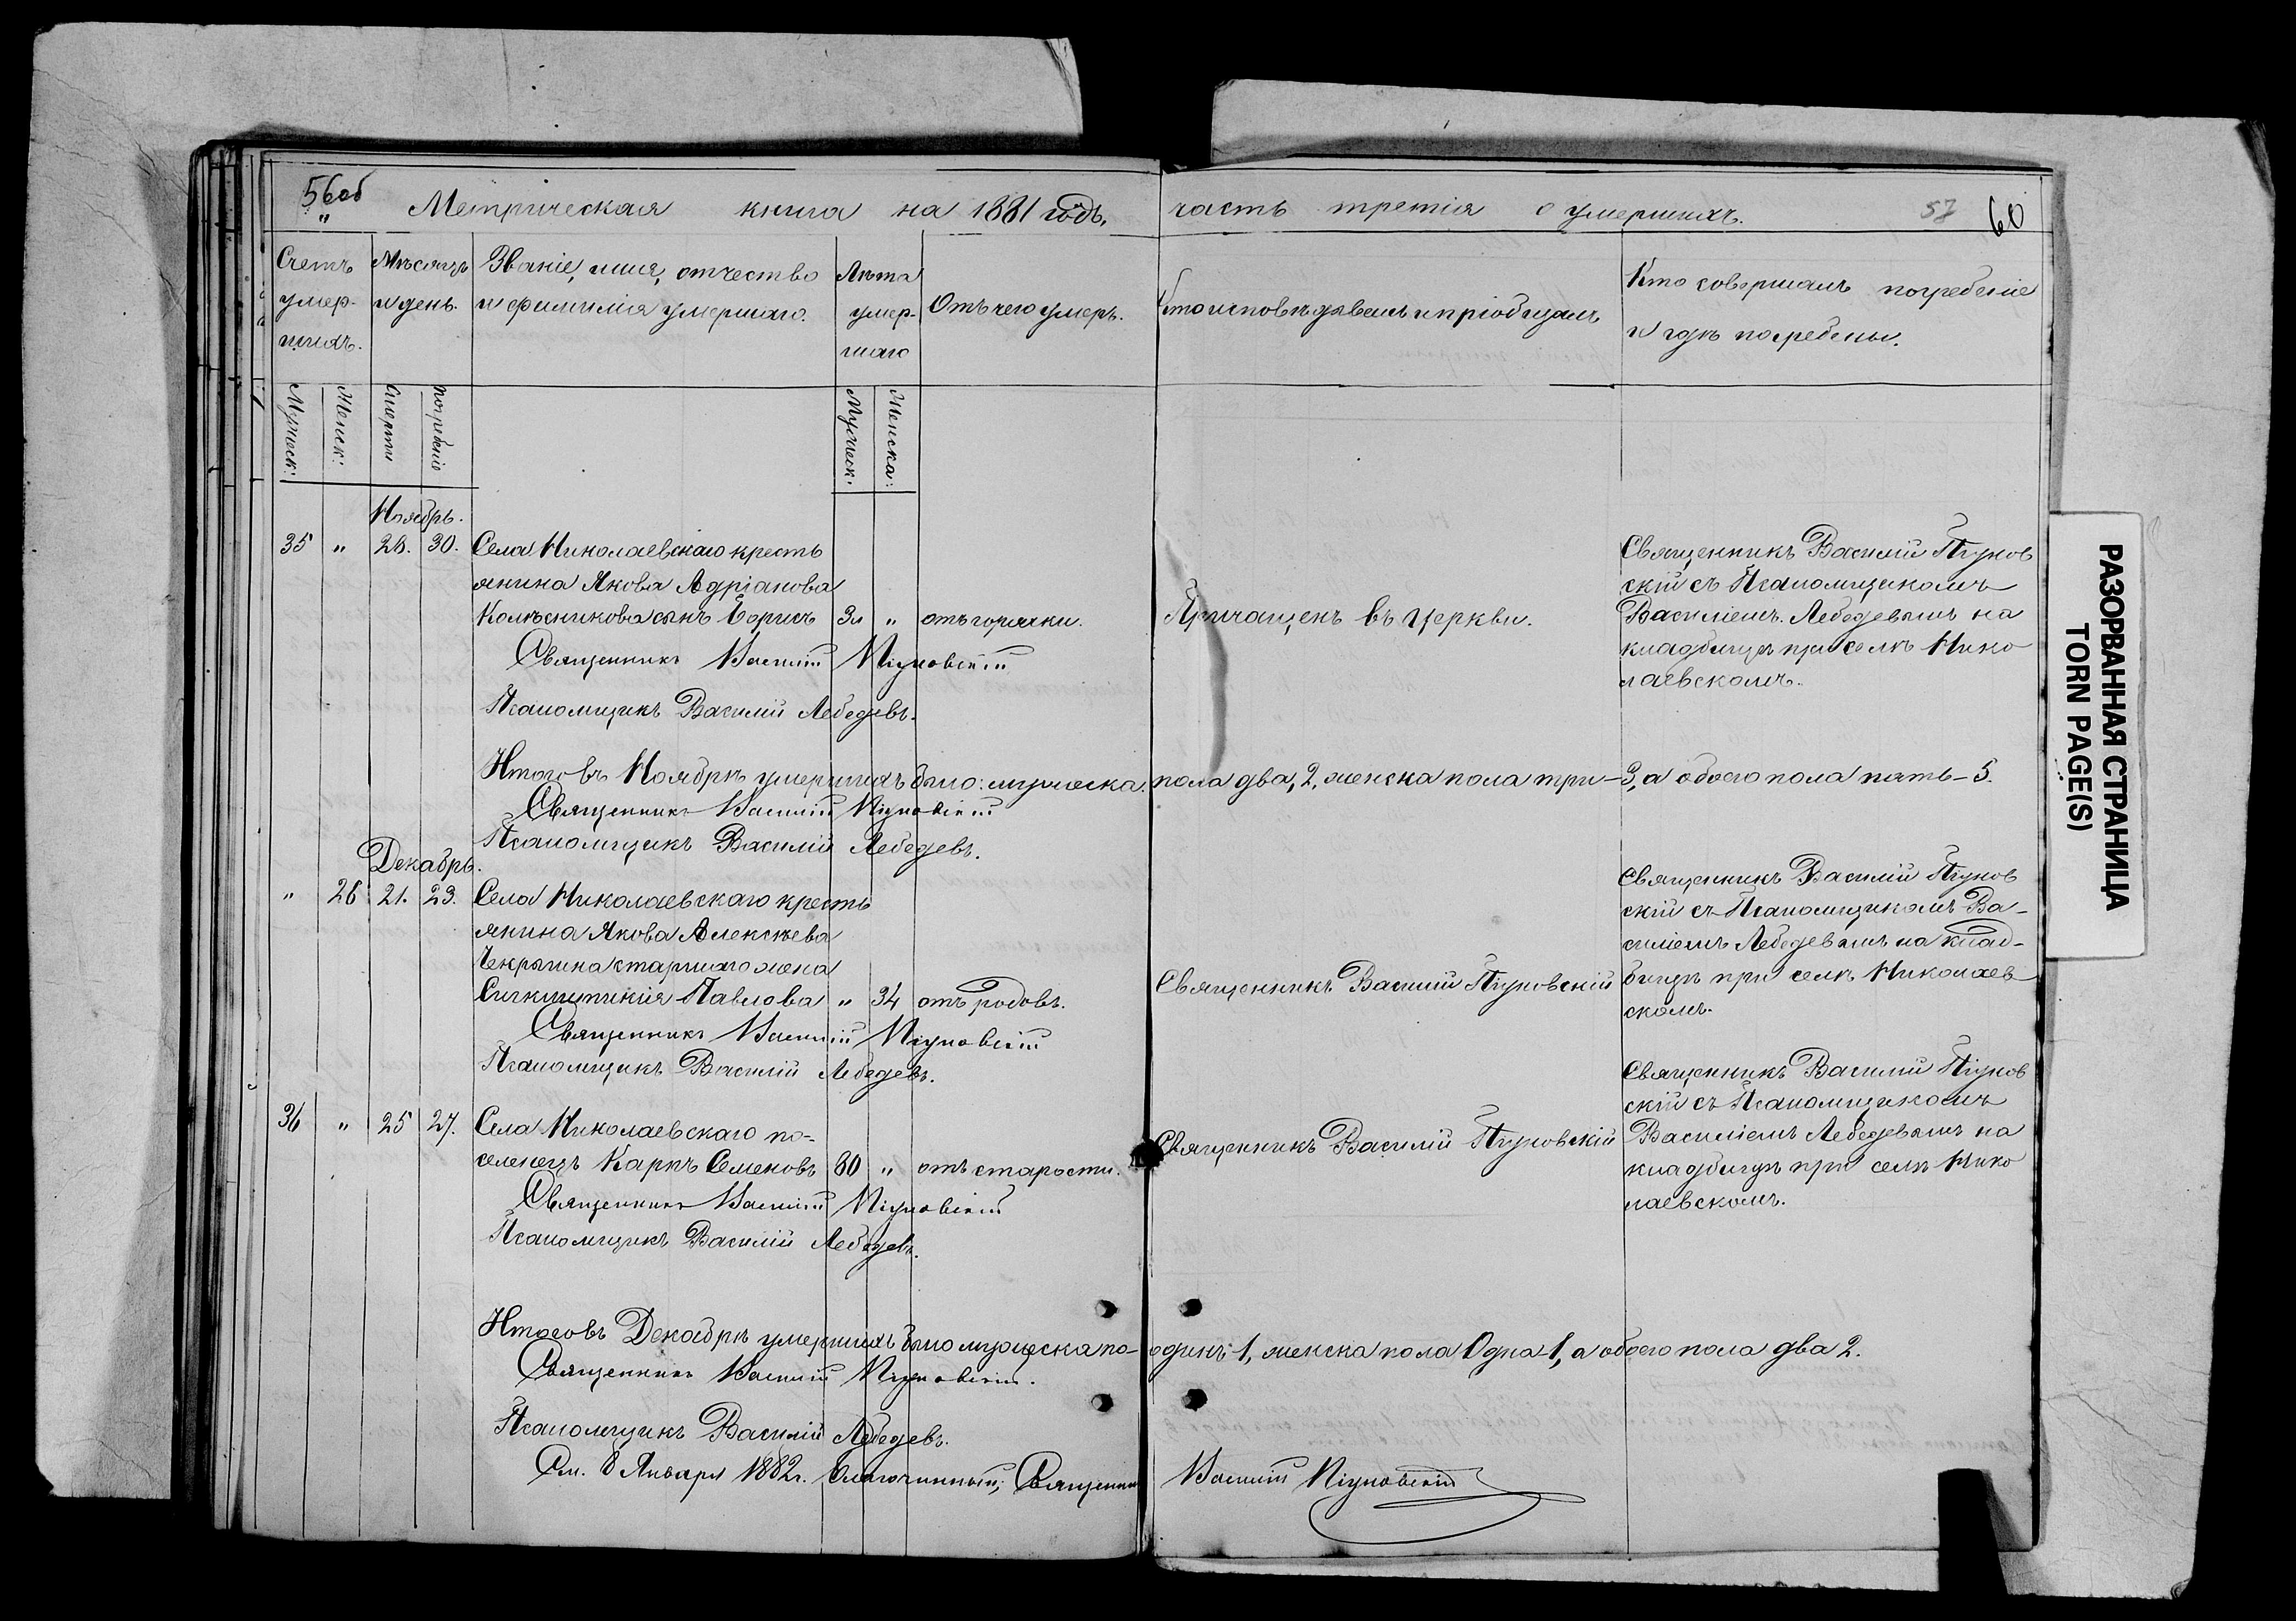 56об
Метрическая книга на 1881 годъ,
часть третія о умершихъ.
57
60
Счетъ умер- шихъ.
Мѣсяцъ и день.
Званіе, имя, отчество и фамилія умершаго.
Лѣта умер- шаго
Отъ чего умеръ.
Кто исповѣдывалъ и пріобщалъ
Кто совершалъ погребеніе и гдѣ погребены.
Мужеск:
Женск:
Смерти
погребенія
Мужеск:
Женска:
Ноябрь.
35 „ 28. 30. Села Николаевскаго кресть
янина Якова Адріанова
Колѣсникова сынъ Борисъ 3л „ отъ горячки.
Причащенъ въ Церкви.
Священникъ Василій Пѣунов
скій съ Псаломщикомъ
Василіемъ Лебедевымъ на
кладбищѣ при селѣ Нико
лаевскомъ.
Священникъ Василій
Псаломщикъ Василій Лебедевъ.
Итого въ Ноябрѣ умершихъ было: мужеска пола два, 2, женска пола три-3, а обоего пола пять-5.
Священникъ Василій
Псаломщикъ Василій Лебедевъ.
Декабрь.
„ 28 21. 23. Села Николаевскаго кресть
янина Якова Алексѣева
Чекрыгина старшаго жена
Павлова „ 34 отъ родовъ.
Священникъ Василій
Священникъ Василій
скій съ Псаломщикомъ Ва-
силіемъ Лебедевымъ на клад-
бищѣ при селѣ Николаев
скомъ.
Священникъ Василій
Псаломщикъ Василій Лебедевъ.
36 „ 25 27. Села Николаевскаго по-
селенецъ Карпъ Семеновъ 80 „ отъ старости.
Священникъ Василій
Священникъ Василій
скій съ Псаломщикомъ
Василіемъ Лебедевымъ на
кладбищѣ при селѣ Нико
лаевскомъ.
Священникъ Василій
Псаломщикъ Василій Лебедевъ.
Итого въ Декабрѣ умершихъ было мужеска по- одинъ-1, женска пола Одна-1, а обоего пола два 2.
Священникъ Василій
Псаломщикъ Василій Лебедевъ.
См. 8 Января 1882г. Благочинный, Священникъ Василій
РАЗОРВАННАЯ СТРАНИЦА
TORN PAGE(S)